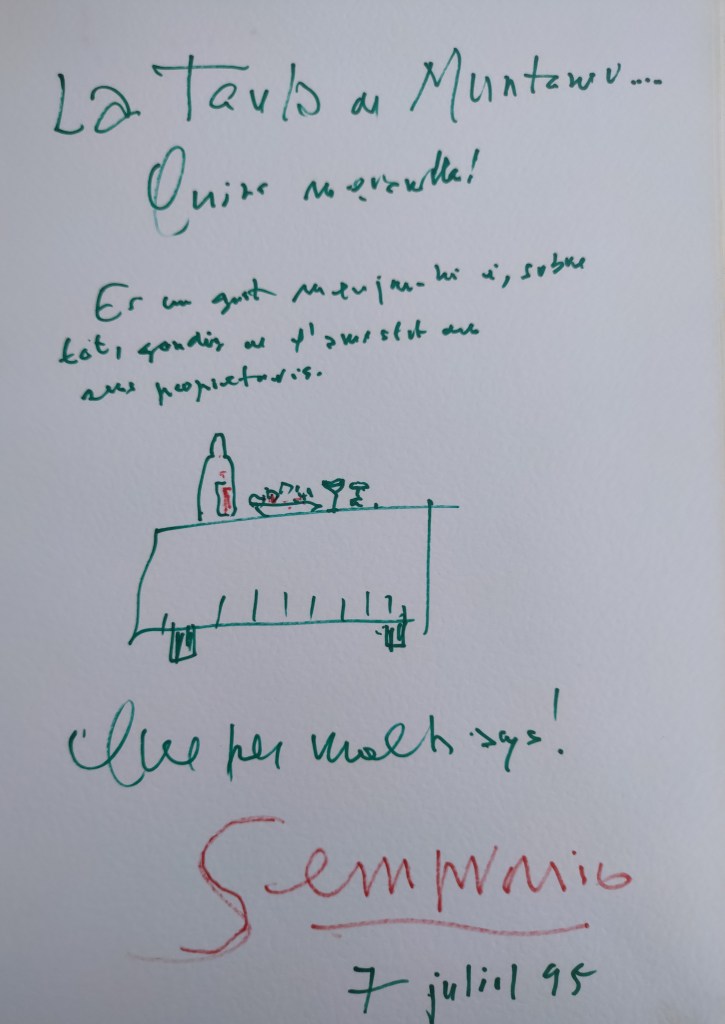 La Taula de Muntaner....
Quina meravella!
Es un gust menjar-hi i, sobre
tot, gaudir de l'amistat dels
seus propietaris.
Que per molts anys!
Sempronio
7 juliol 95